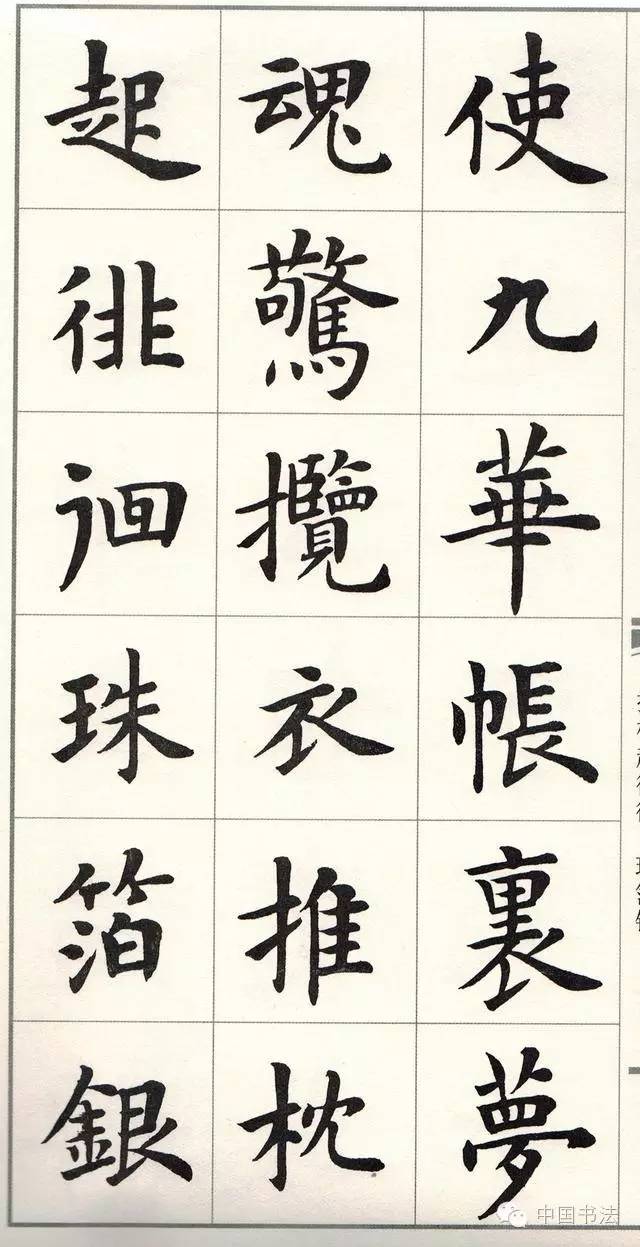 使九華帳裏夢
魂驚攬衣推枕
起徘徊珠箔銀
中国书法